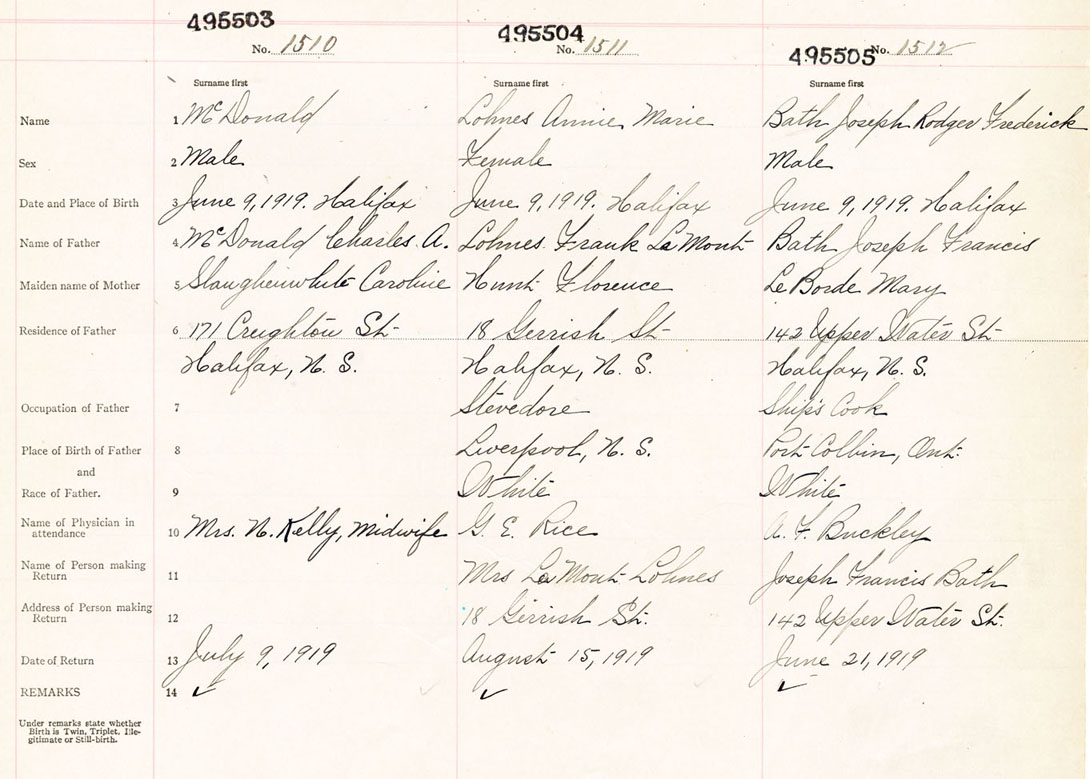 495503 495504 495505
No. 1510 No. 1511 No. 1512
Surname first Surname first Surname first
Name 1 McDonald Lohnes Annie Marie Bath Joseph Rodger Frederick
Sex 2 Male Female Male
Date and Place of Birth 3 June 9, 1919. Halifax June 9, 1919. Halifax June 9, 1919. Halifax
Name of Father 4 McDonald Charles A. Lohnes Frank La Mont Bath Joseph Francis
Maiden name of Mother 5 Slaughenwhite Caroline Hunt Florence Le Borde Mary
Residence of Father 6 171 Creighton St 18 Gerrish St 142 Upper Water St
Halifax, N. S. Halifax, N. S. Halifax, N. S.
Occupation of Father 7 Stevedore Ship's Cook
Place of Birth of Father 8 Liverpool, N. S. Port Colbin, Ont.
and
Race of Father. 9 White White
Name of Physician in
attendance 10 Mrs. N. Kelly, Midwife G. E. Rice A. F. Buckley
Name of Person making
Return 11 Mrs La Mont Lohnes Joseph Francis Bath
Address of Person making
Return 12 18 Girrish St. 142 Upper Water St.
Date of Return 13 July 9, 1919 August 15, 1919 June 21, 1919
REMARKS 14 ✓ ✓ ✓
Under remarks state whether
Birth is Twin, Triplet, Ille-
gitimate or Still-birth.